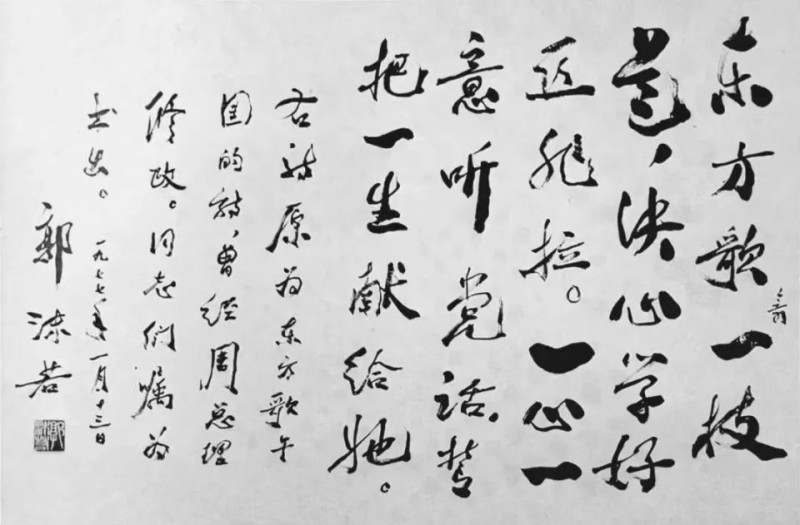 东方歌一枝
花，决心学好
亚非拉。一心一
意听党话，誓
把一生献给她。
右诗原为东方歌午
团的诗，曾经周总理
修改。同志们嘱为
书出。一九七七年一月十三日
郭沫若